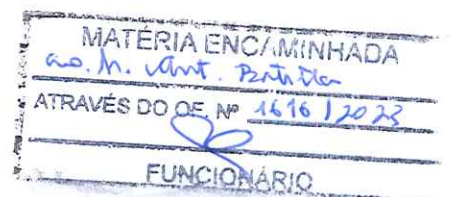 MATÉRIA ENCAMINHADA
ao. h.
ATRAVÉS DO OF. Nº 1616 / 2023
FUNCIONÁRIO